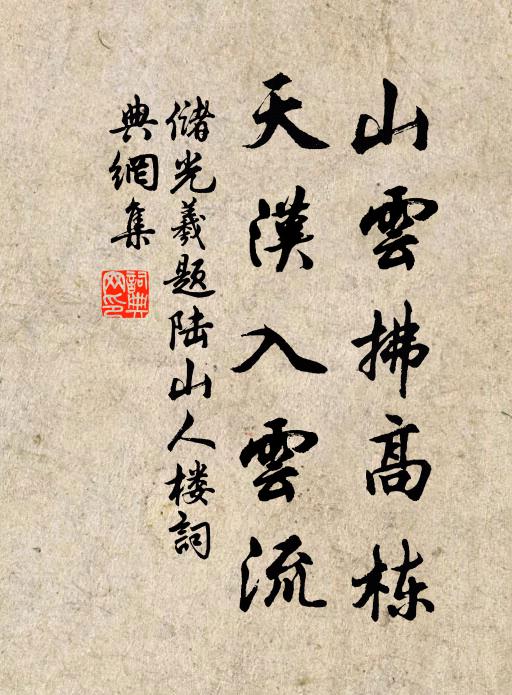 山雲拂高栋
天漢入雲流
儲光羲题陆山人楼詞
典網集
詞典
网印